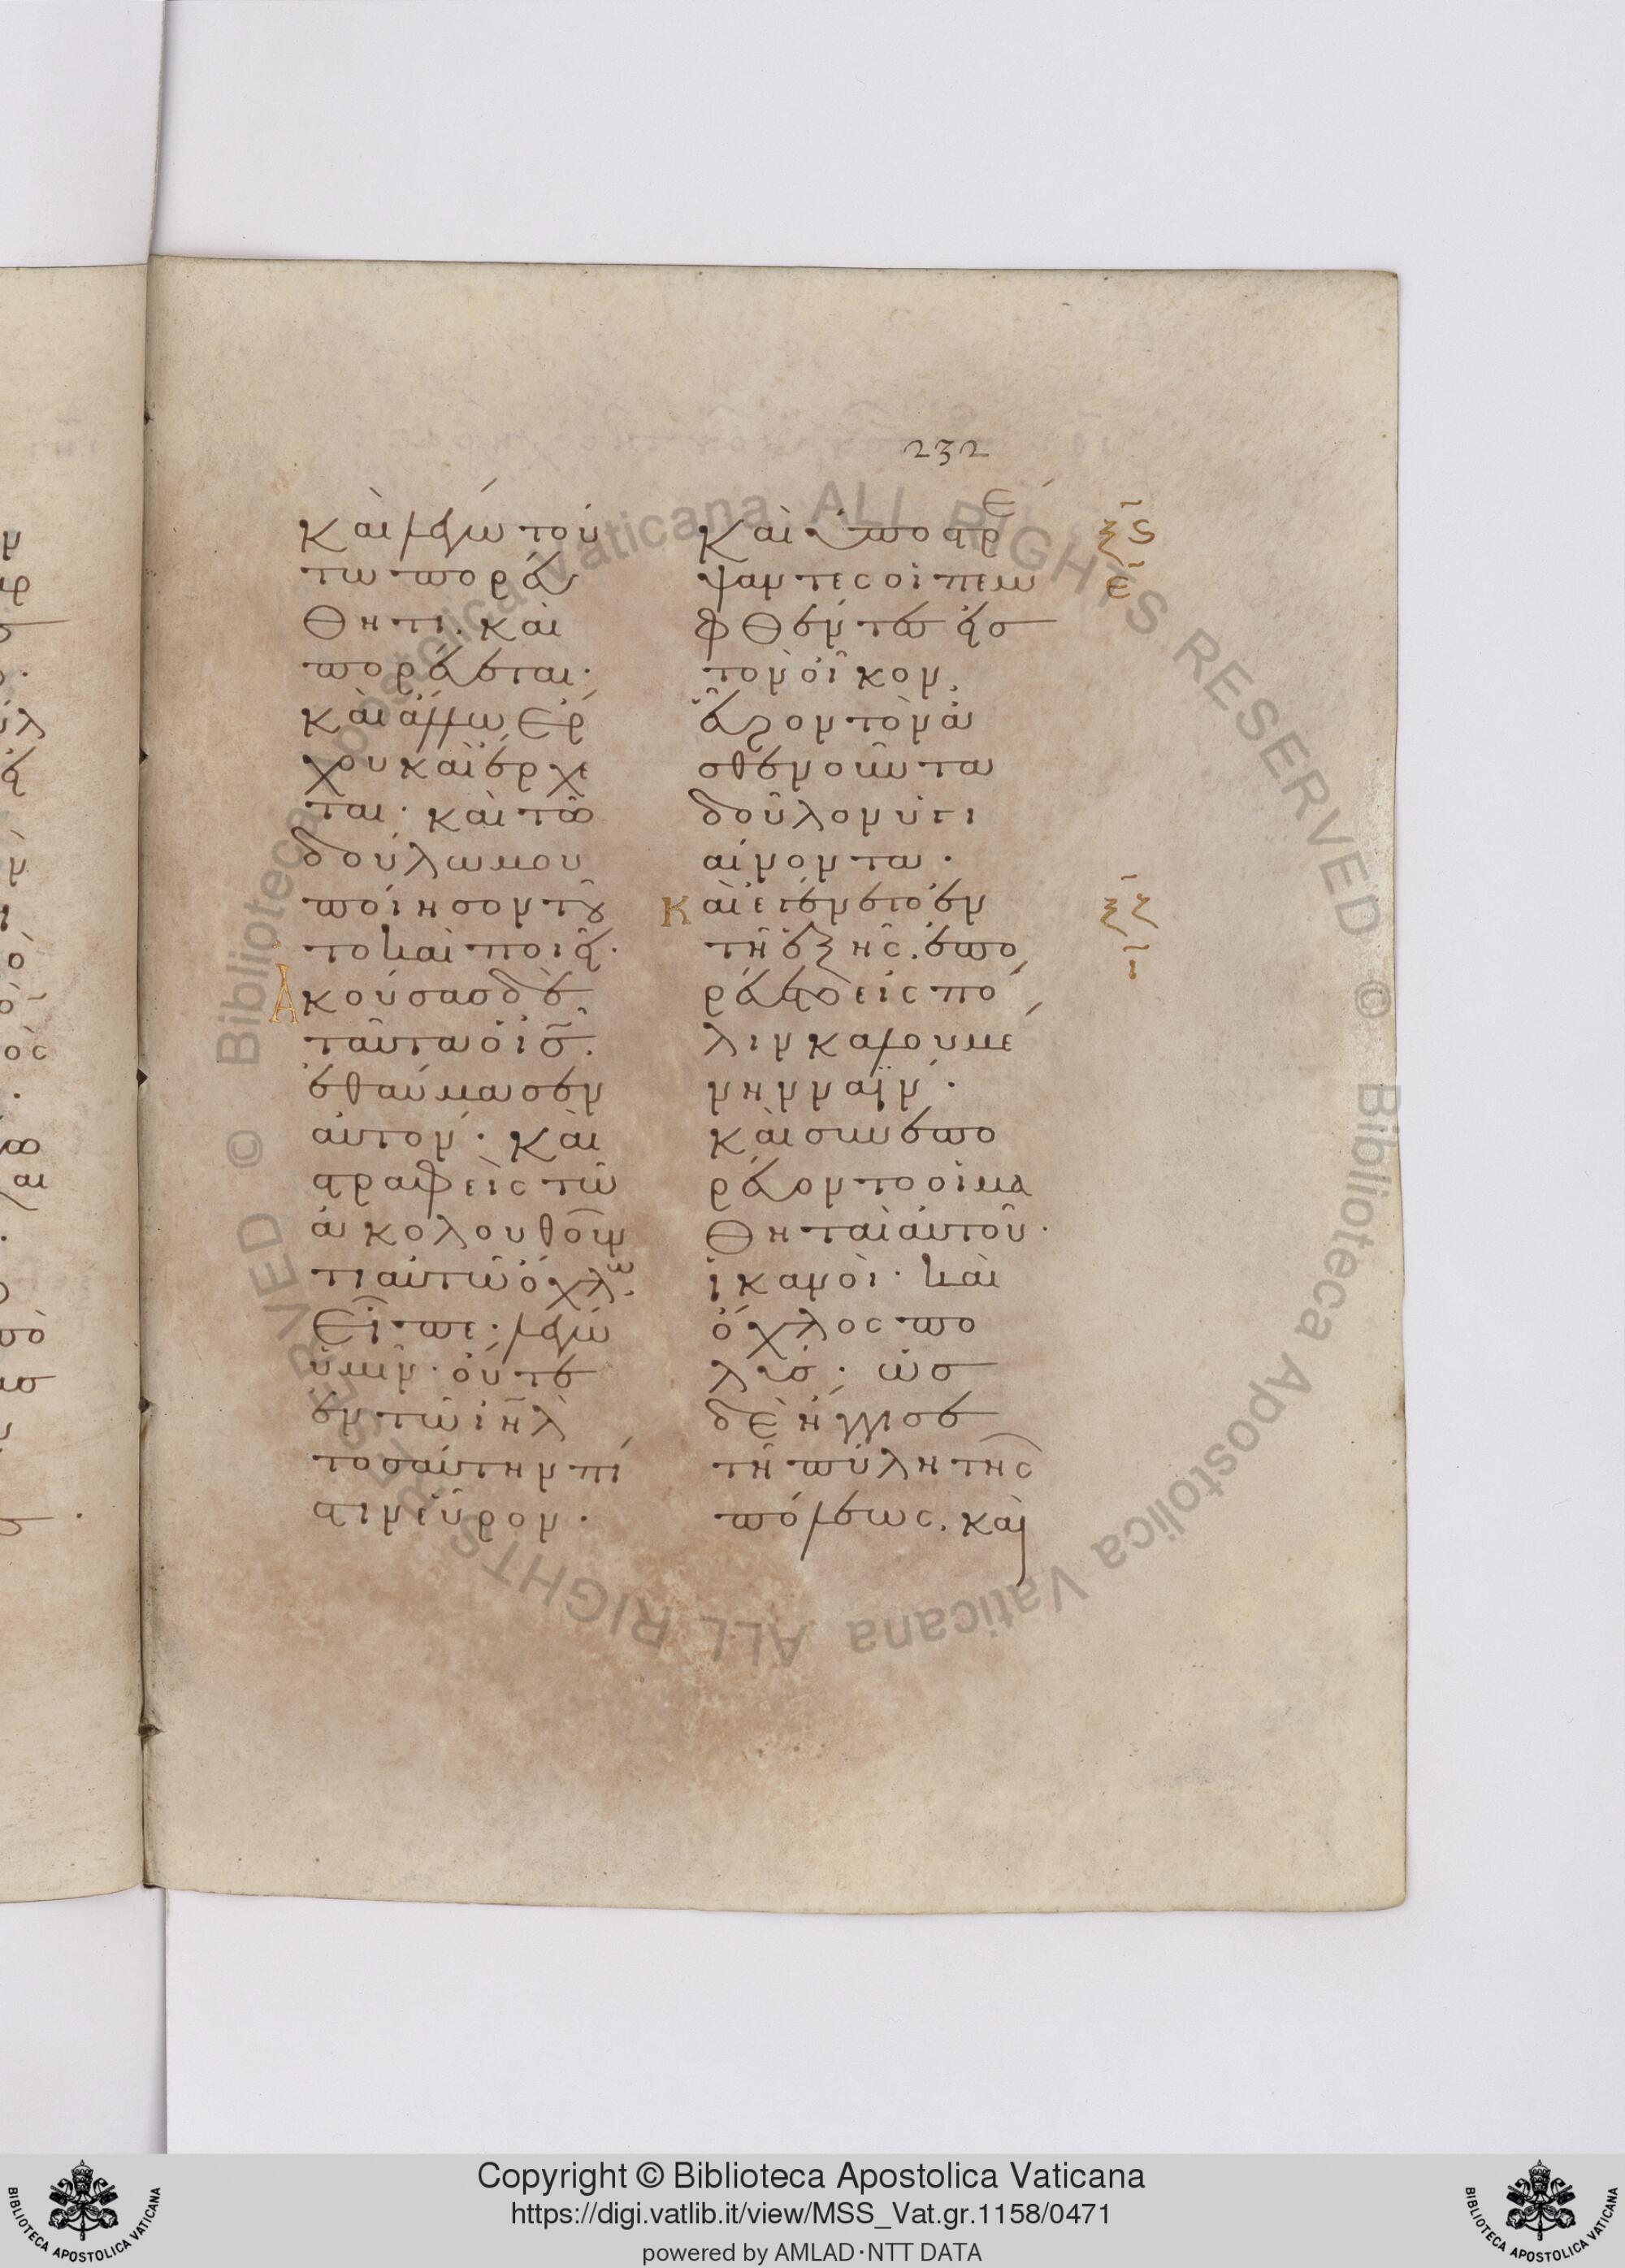 232
καὶ λέγω τού
τω πορεύ
θητι. καὶ
πορεύεται·
καὶ ἄλλω ἔρ
χου καὶ ἔρχε
ται· καὶ τῶ
δούλω μου
ποίησον τοῦ
το καὶ ποιεῖ·
Ἀκούσας δὲ
ταῦτα ὁ ις̄.
ἐθαύμασεν
αὐτόν· καὶ
στραφεὶς τῶ
ἀκολουθοῦν
τι αὐτῶ ὄχλω.
Εἶπε· λέγω
ὑμῖν· οὔτε
ἐν τῶ ιη̄λ
τοσαύτην πί
στιν εὗρον·
Καὶ ὑποστρέ
ψαντες οἱ πεμ
φθέντες εἰς
τὸν οἶκον,
εὗρον τὸν ἀ
σθενοῦντα
δοῦλον ὑγι
αίνοντα·
Καὶ ἐγένετο ἐν
τῆ ἑξῆς. ἐπο
ρεύετο εἰς πό
λιν καλουμέ
νην ναΐν·
καὶ συνεπο
ρεύοντο οἱ μα
θηταὶ αὐτοῦ·
ἱκανοὶ· καὶ
ὄχλος πο
λύς· ὡς
δὲ ἤγγισε
τῆ πύλη τῆς
πόλεως. καὶ
ξϛ
ε
ξζ
ι
Copyright © Biblioteca Apostolica Vaticana
https://digi.vatlib.it/view/MSS_Vat.gr.1158/0471
powered by AMLAD·NTT DATA
BIBLIOTECA APOSTOLICA VATICANA
BIBLIOTECA APOSTOLICA VATICANA
© Biblioteca Apostolica Vaticana ALL RIGHTS RESERVED © Biblioteca Apostolica Vaticana ALL RIGHTS RESERVED